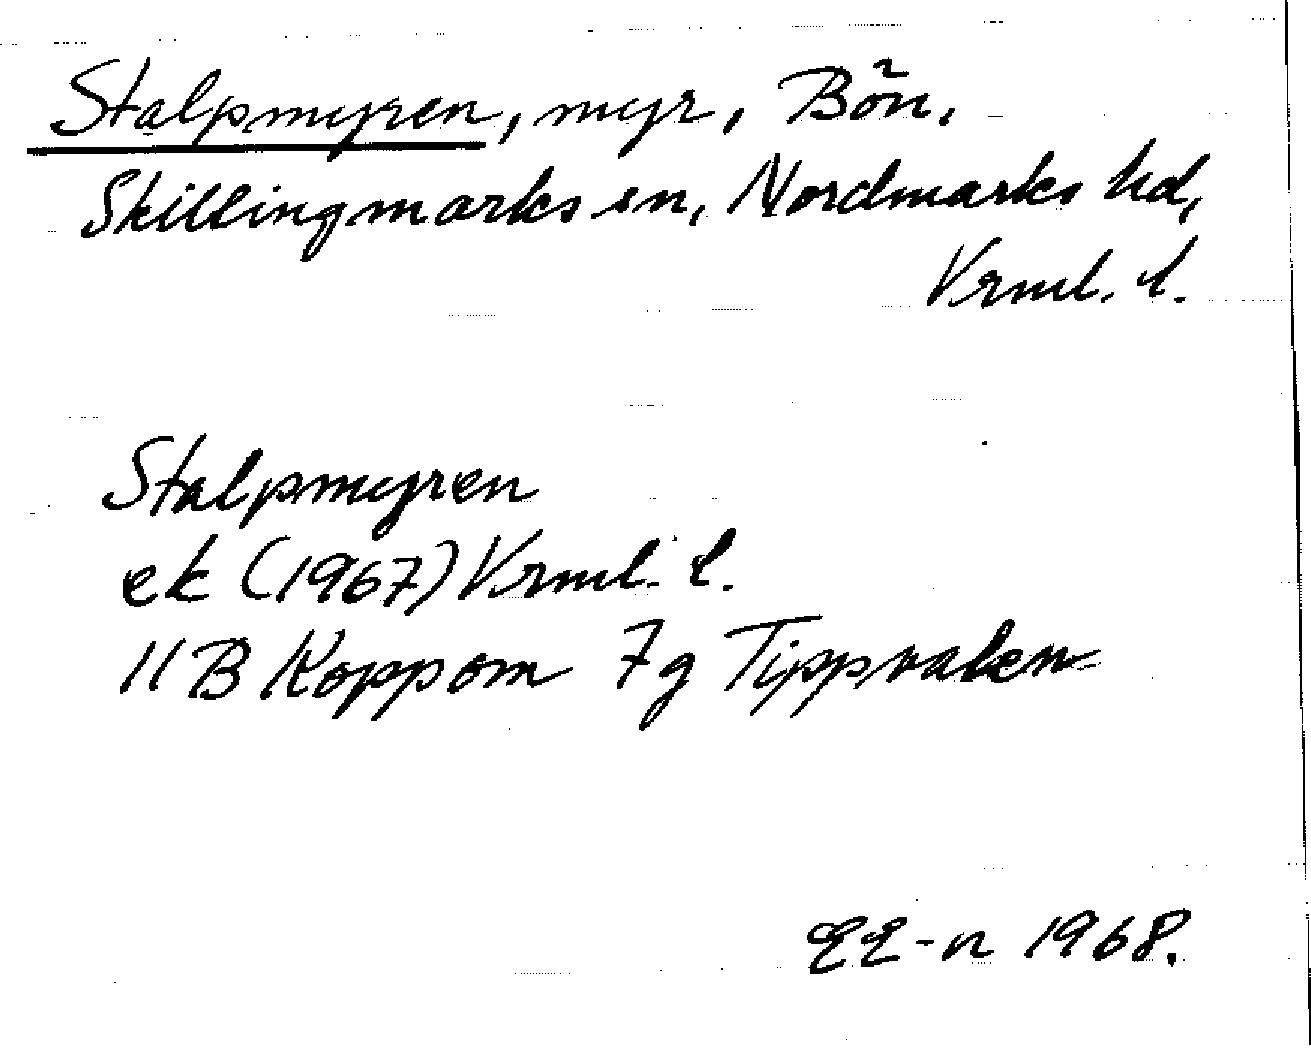 Stalpmyren, myr, Bön,
Skillingmarks sn, Nordmarks hd,
Vrml. l.
Stalpmyren
ek (1967) Vrml. l.
11B Koppom 7g Tippvaken
EE-n 1968.